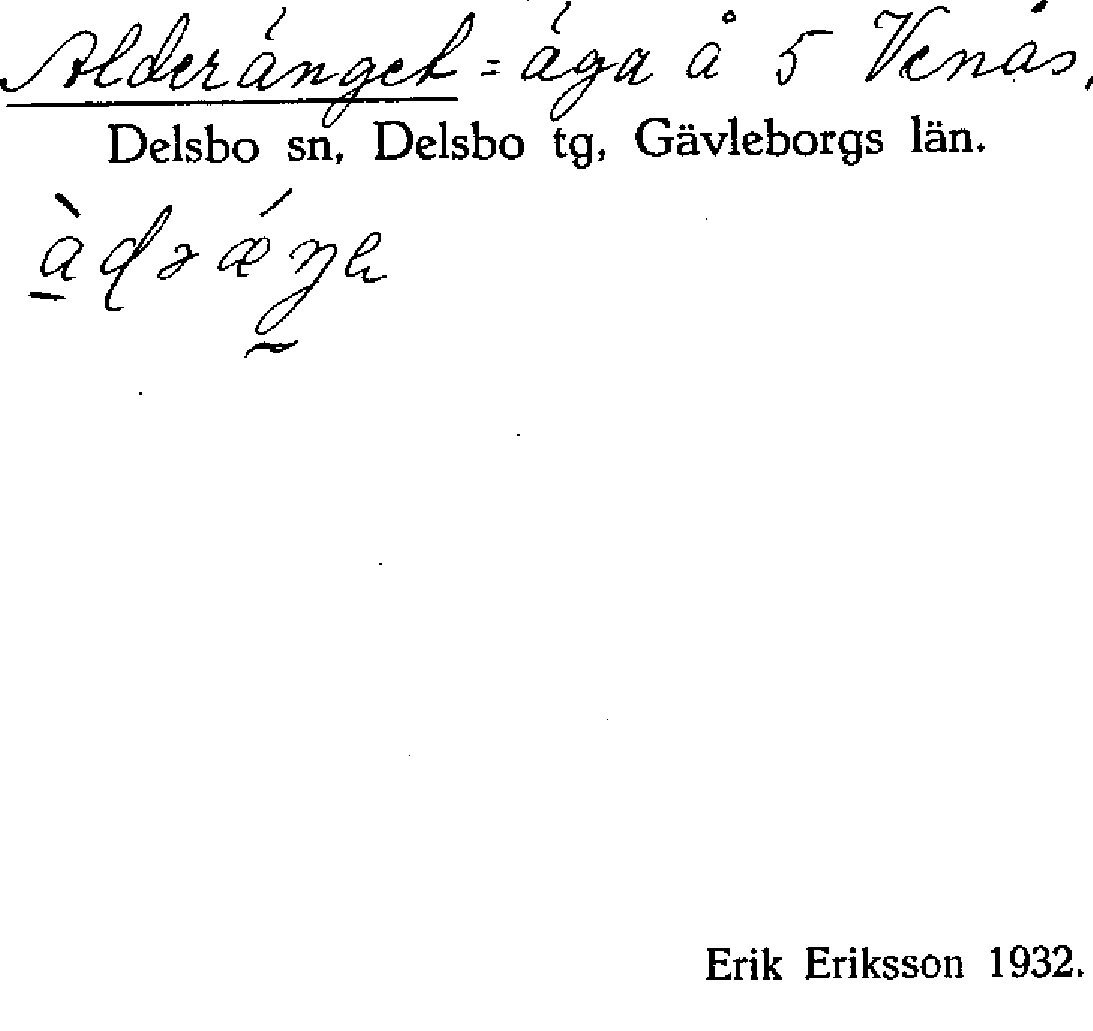 Alderänget = äga å 5 Venås.
Delsbo sn, Delsbo tg, Gävleborgs län.
Erik Eriksson 1932.